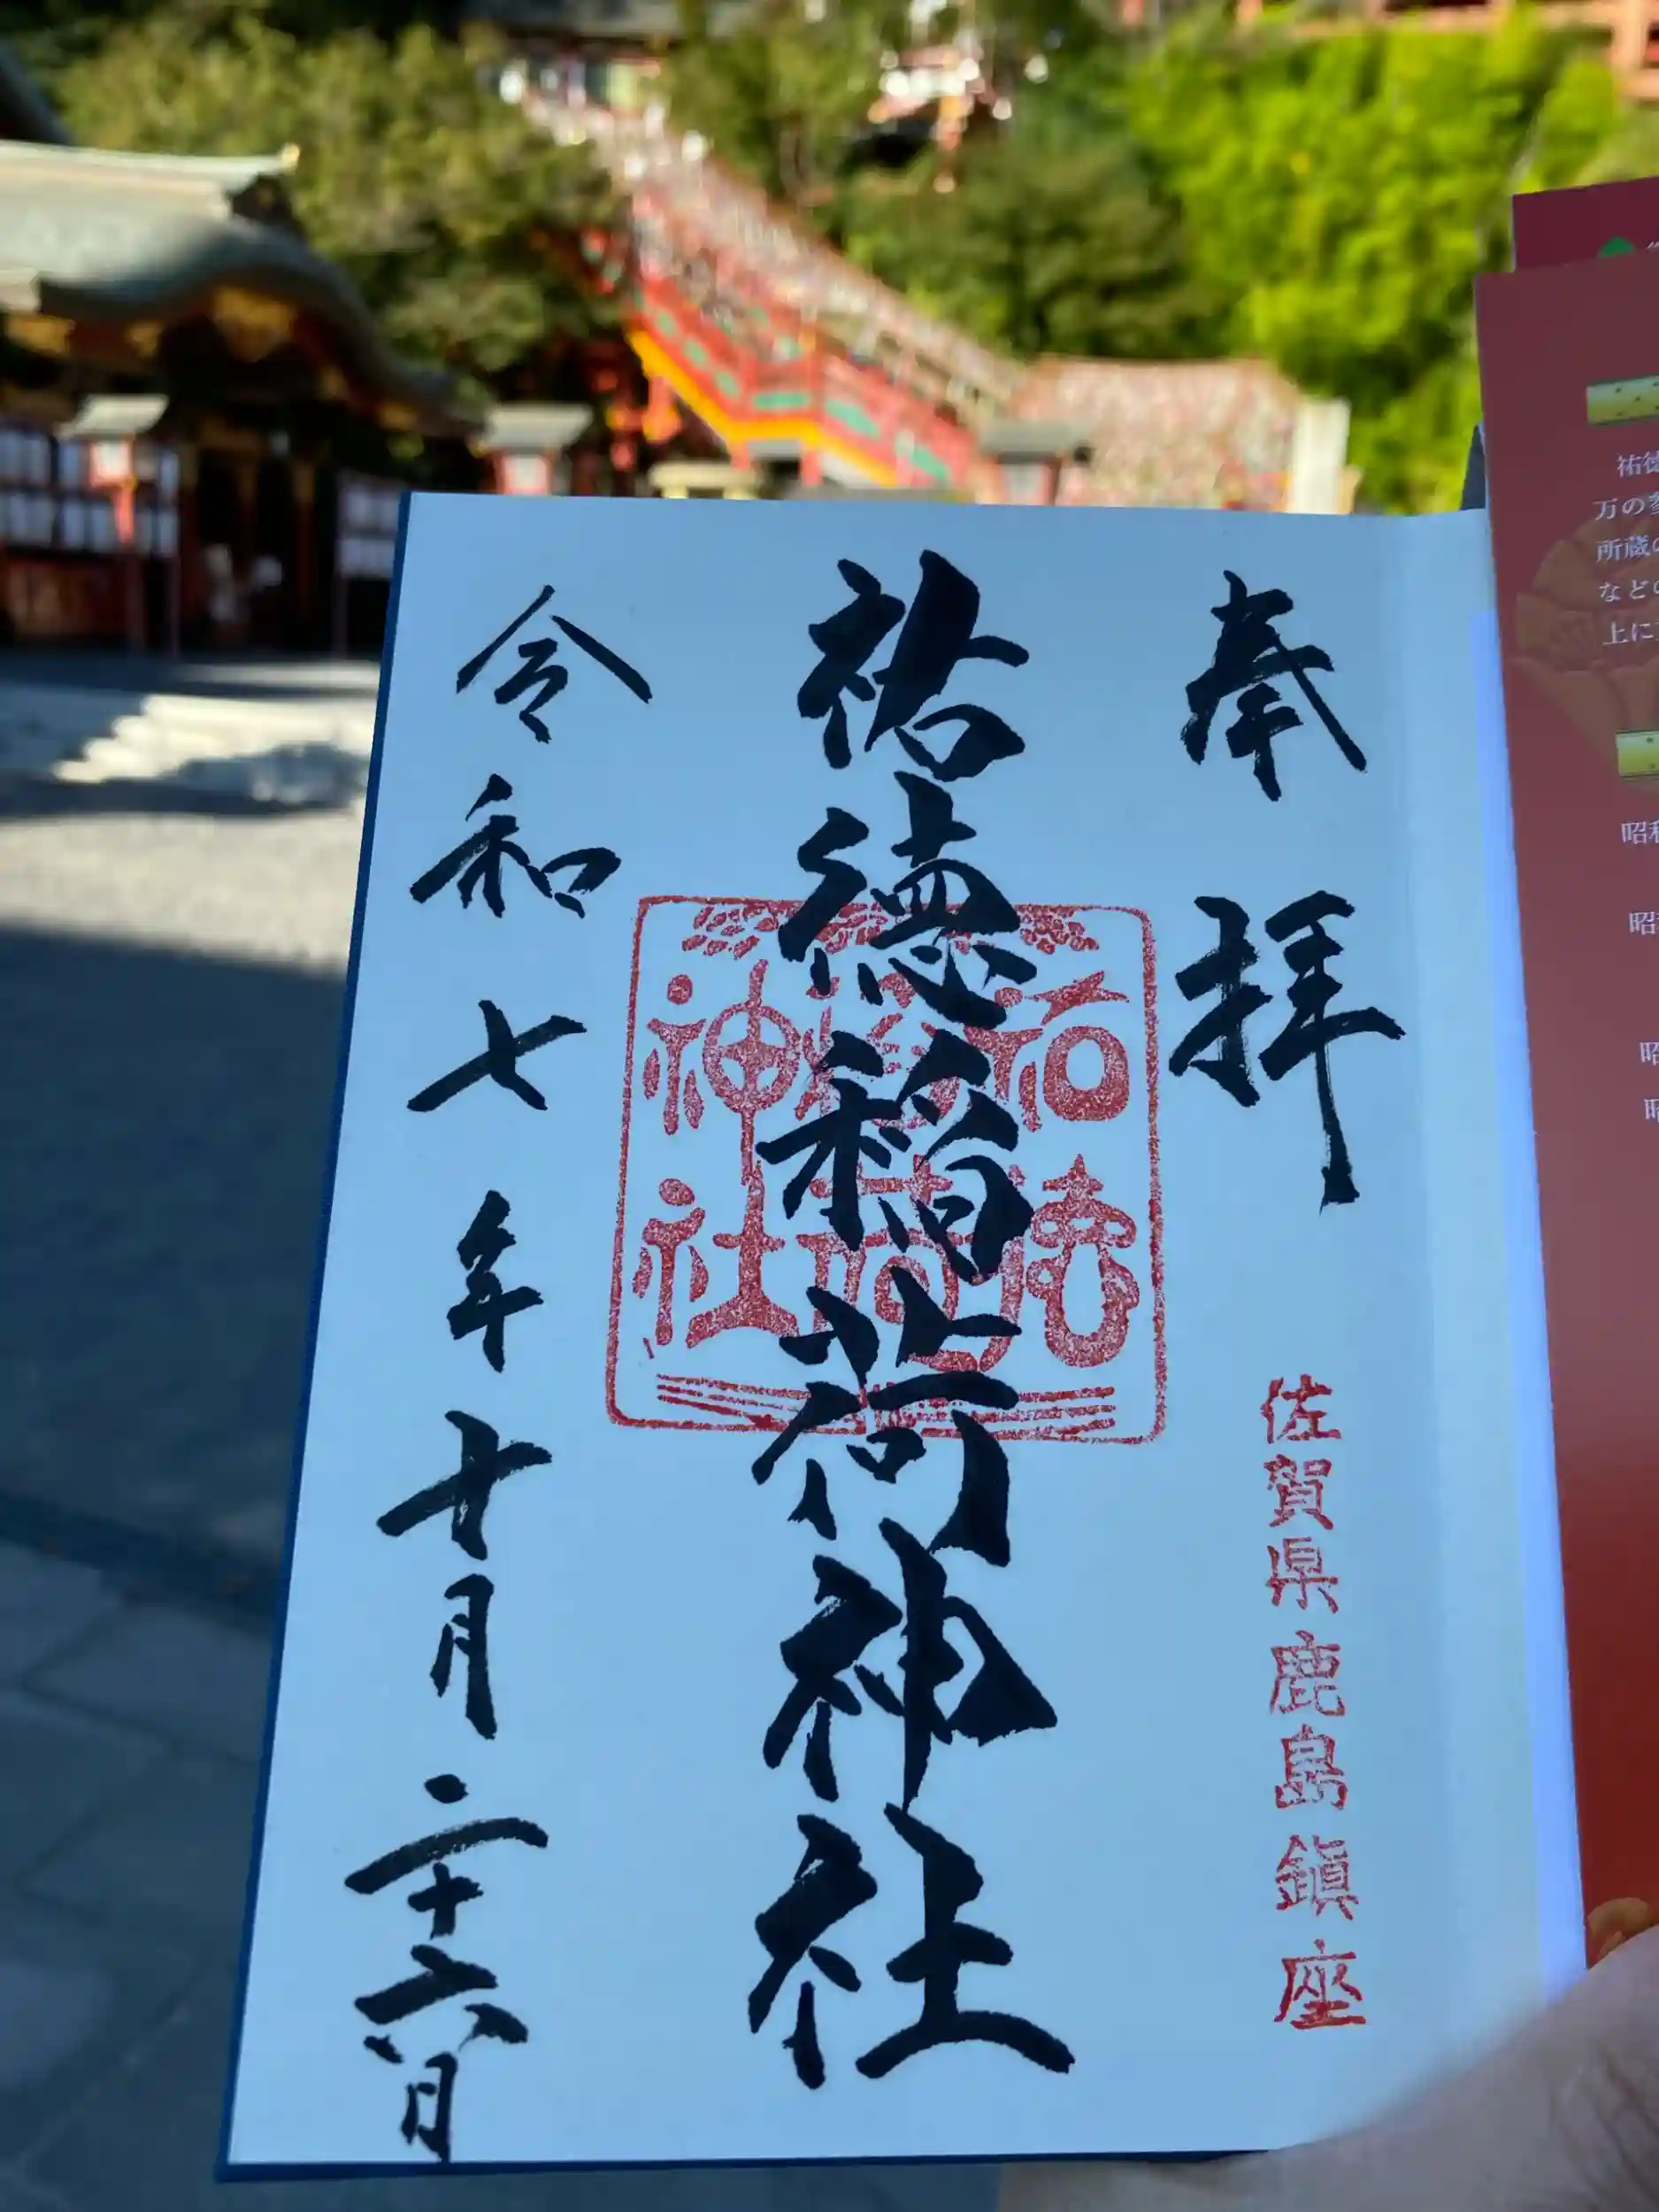 奉拝
佐賀県鹿島鎮座
祐徳稲荷神社
祐徳
稲荷
神社
令和七年十月二十六日
祐徳
万の
所蔵の
などの
上に
昭和
昭
昭
昭